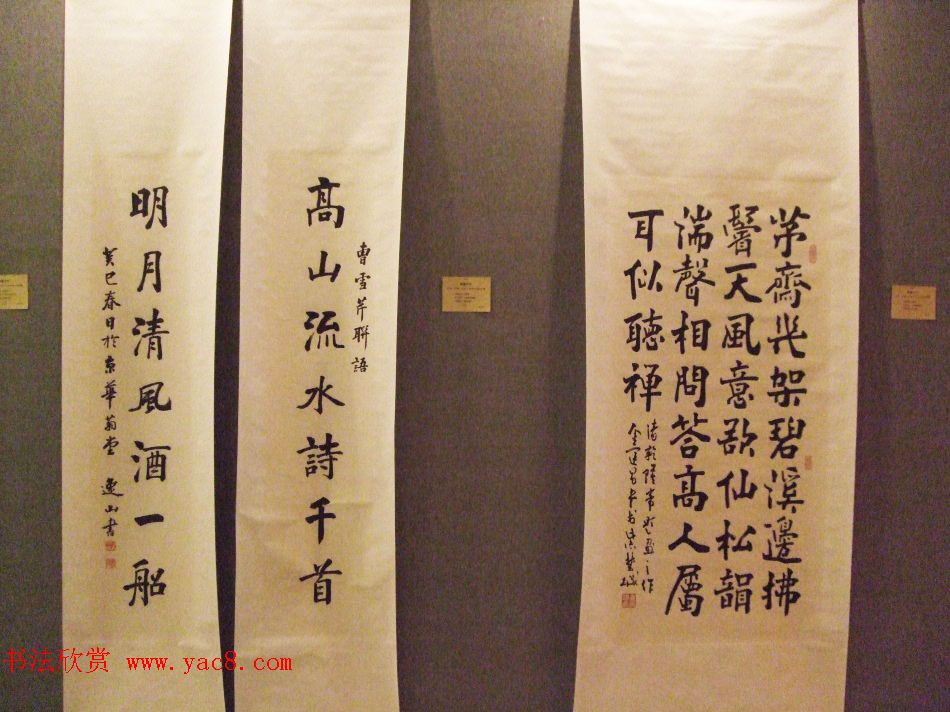 茅齋幾架碧溪邊拂
鬢天風意欲仙松韻
湍聲相問答高人屬
耳似聽禅
高山流水詩千首
曹雪芹聯語
明月清風酒一船
癸巳春日於京華菊堂 逸山書
书法欣赏 www.yac8.com